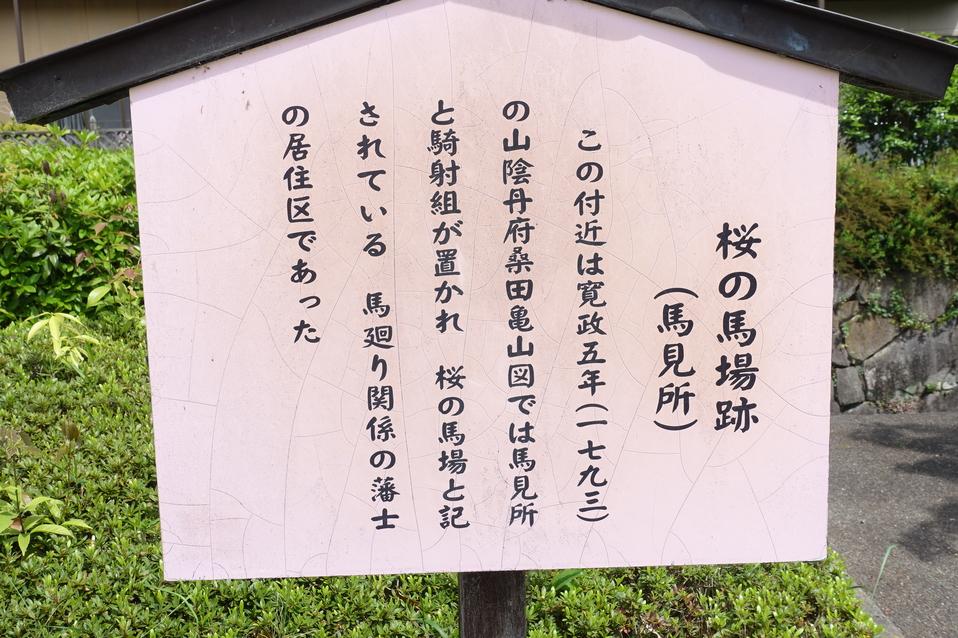 桜の馬場跡
（馬見所）
この付近は寛政五年（一七九三）
の山陰丹府桑田亀山図では馬見所
と騎射組が置かれ　桜の馬場と記
されている　馬廻り関係の藩士
の居住区であった